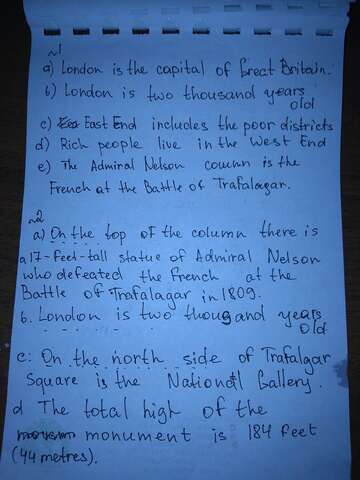 ~1
a) London is the capital of Great Britain.
b) London is two thousand years
old
c) East End includes the poor districts
d) Rich people live in the West End
e) The Admiral Nelson coumn is the
French at the Battle of Trafalagar.
~2
a) On the top of the column there is
a 17-Feet-tall statue of Admiral Nelson
who defeated the French at the
Battle of Trafalagar in 1809.
b. London is two thousand years
old
c: On the north side of Trafalgar
Square is the National Gallery.
d The total high of the
monument is 184 feet
(44 metres).